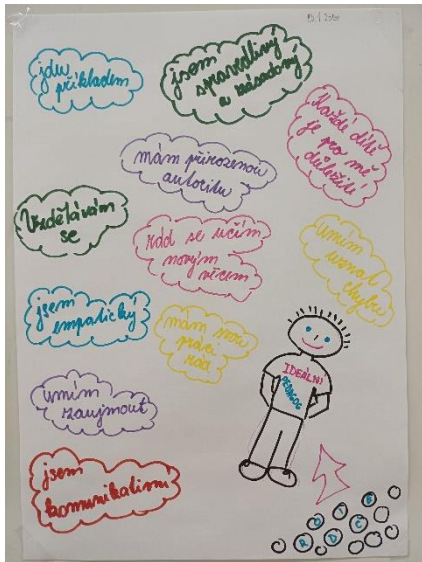 jdu
příkladem
jsem
spravedlivý
a zásadový
Každé dítě
je pro mě
důležité
mám přirozenou
autoritu
Vzdělávám
se
rád se učím
novým
věcem
umím
uznat
chybu
jsem
empatický
mám svou
práci
rád
umím
zaujmout
IDEÁLNÍ
PEDAGOG
jsem
komunikativní